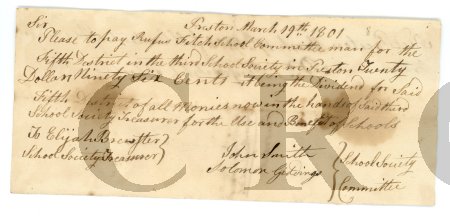 Sir Preston March 19th 1801
Please to pay Rufus Fitch School Committee man for the
Fifth District in the third School Society in Preston Twenty
Dollar Ninety Six Cents it being the Dividend for Said
Fifth District of all Monies now in the hands of Said third
School Society Treasurer for the Use and Benefit of Schools
To Elijah Brewster
School Society Treasurer
John Smith
Solomon Giddings
School Society
Committee